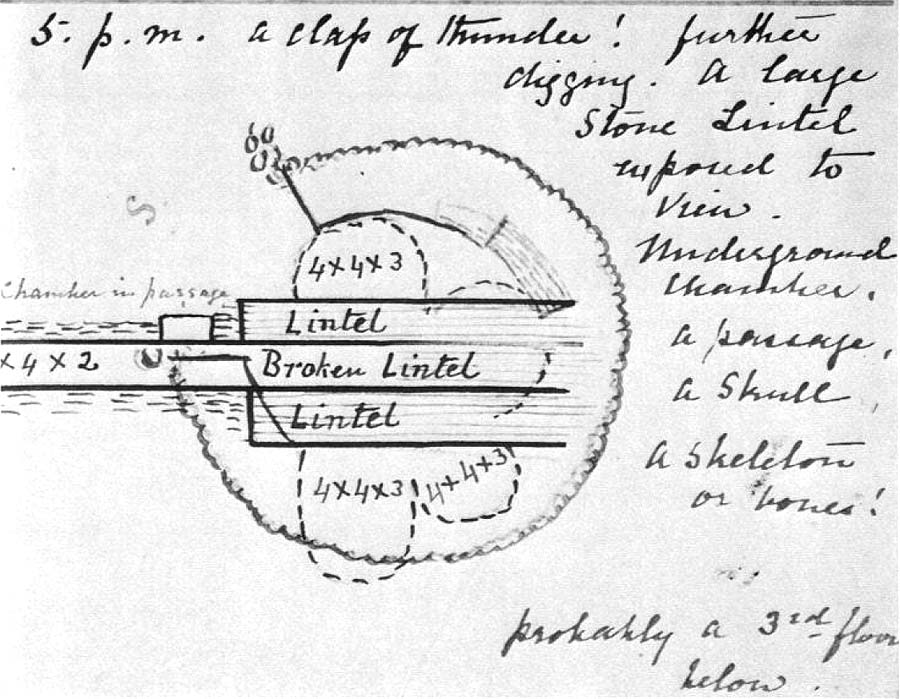 5. p.m. a clap of thunder! further
digging. A large
Stone Lintel
exposed to
View.
Underground
Chamber.
a passage,
a Skull,
A Skeleton
or bones!
probably a 3rd floor
below.
4×4×3
Chamber in passage
Lintel
×4×2
Broken Lintel
Lintel
4×4×3
4×4×3